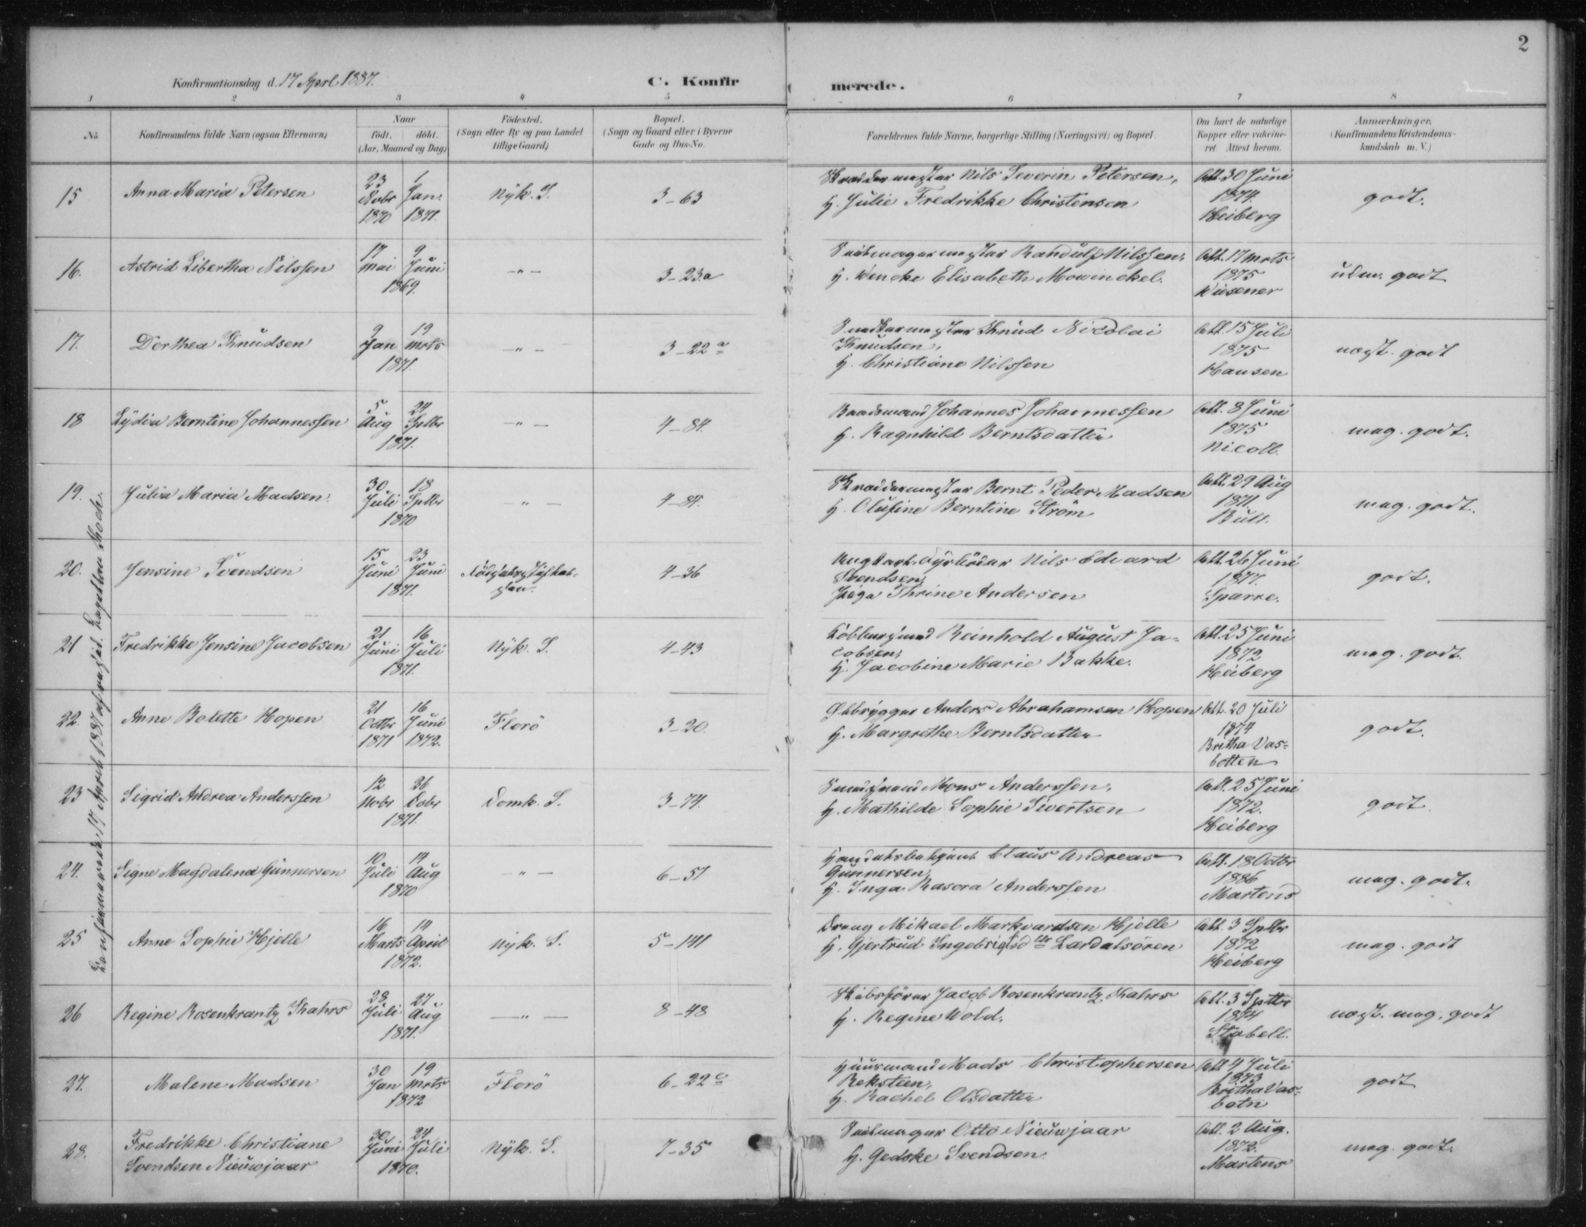 2
Konfirmationsdag d. 17 April 1887.
C. Konfirmerede.
1 2 3 4 5 6 7 8
No.
Konfirmandens fulde Navn (ogsaa Efternavn)
Naar
født. døbt.
(Aar, Maaned og Dag)
Fødested.
(Sogn eller By og paa Landet
tillige Gaard)
Bopæl.
(Sogn og Gaard eller i Byerne
Gade og Hus-No.
Forældrenes fulde Navne, borgerlige Stilling (Næringsvei) og Bopæl.
Om havt de naturlige
Kopper eller vaksineret
Attest herom.
Anmærkninger.
(Konfirmandens Kristendomskundskab
m. V.)
15 Anna Maria Petersen
23 Novbr 1870
1 Jan. 1871.
Nÿk. S.
3-63
Skræddermester Nils Severin Petersen,
H. Julie Fredrikke Christensen
Att. 30 Juni
1874
Heiberg
godt.
16. Astrid Libertha Nilssen
17 Mai 9 Juni
1869.
-"-
3-23a
Randulf Nilssen,
H. Wencke Elisabeth Mowinckel.
Att. 17 Mrts
1875
Wiesener
udm. godt
17. Dorthea Knudsen
9 Jan 19 Mrts
1871
-"-
3-22 a
Knud Nicolai
Knudsen,
H. Christiane Nilssen
Att. 15 Juli
1875
Hansen
nogst. godt
18 Lÿdia Berntine Johannessen
5 Aug 24 Sptbr
1871.
-"-
4-84.
Johannes Johannessen
H. Ragnhild Berntsdatter
Att. 8 Juni
1875
Nicoll.
mag. godt.
19. Julia Maria Madsen.
30 Juli 18 Sptbr
1870
-"-
4-84.
Skræddermester Bernt Peder Madsen
H. Olufine Berntine Strøm
Att. 29 Aug
1871.
Bull.
mag. godt.
20. Jensine Svendsen
15 Juni 23 Juni
1871.
4-36
Nils Edvard
Svendsen,
Thrine Andersen
Att. 26 Juni
1877.
Sparre.
godt.
21 Fredrikke Jensine Jacobsen
21 Juni 16 Juli
1871.
Nÿk. S.
4-43
Reinhold August Jacobsen,
H. Jacobine Marie Bakke.
Att. 25 Juni
1872
Heiberg
mag. godt.
22. Anne Bolette Hopen
21 Octbr 1871
16 Juni 1872.
Florø
3-20
Ølbrygger Anders Abrahamsen Hopen
H. Margrethe Berntsdatter
Att. 20 Juli
1874
Britha Vasbotten
godt.
23 Sigrid Andrea Anderssen
12 Novbr 26 Dcbr
1871.
Domk. S.
3-74.
Mons Anderssen,
H. Mathilde Sophie Sivertsen
Att. 25 Juni
1872.
Heiberg
godt
24. Signe Magdalena Gunnersen
10 Juli 14 Aug
1870
-"-
6-51
Claus Andreas
Gunnersen,
H. Inga Rasora Anderssen
Att. 18 Octbr
1886
Martens
mag. godt.
25 Anne Sophie Hjelle
16 Marts 14 April
1872.
Nÿk. S.
5-141
Dreng Mikael Markvardsen Hjelle
H. Gjertrud Ingebrigtsdtr Lærdalsøren
Att. 3 Sptbr
1872
Heiberg
mag. godt
26 Regine Rosenkrantz Skahrs
28 Juli 27 Aug
1871.
-"-
8-48
Skibsfører Jacob Rosenkrantz Skahrs
H. Regine Wold.
Att. 3 Sptbr
1874
Stabell.
nogst. mag. godt
27. Malene Madsen
30 Jan 19 Mrts
1872
Florø
6-22 c
Huusmand Mads Christophersen
Reksteen,
H. Rachel Olsdatter
Att. 4 Juli
1873
Britha Vasbotn
godt
28. Fredrikke Christiane
Svendsen Nieuwjaar
30 Juni 24 Juli
1870.
Nÿk. S.
7-35
Seilmager Otto Nieuwjaar
H. Gedske Svendsen
Att. 2 Aug.
1872.
Martens
mag. godt.
Konfirmerede 17 April 1887 af